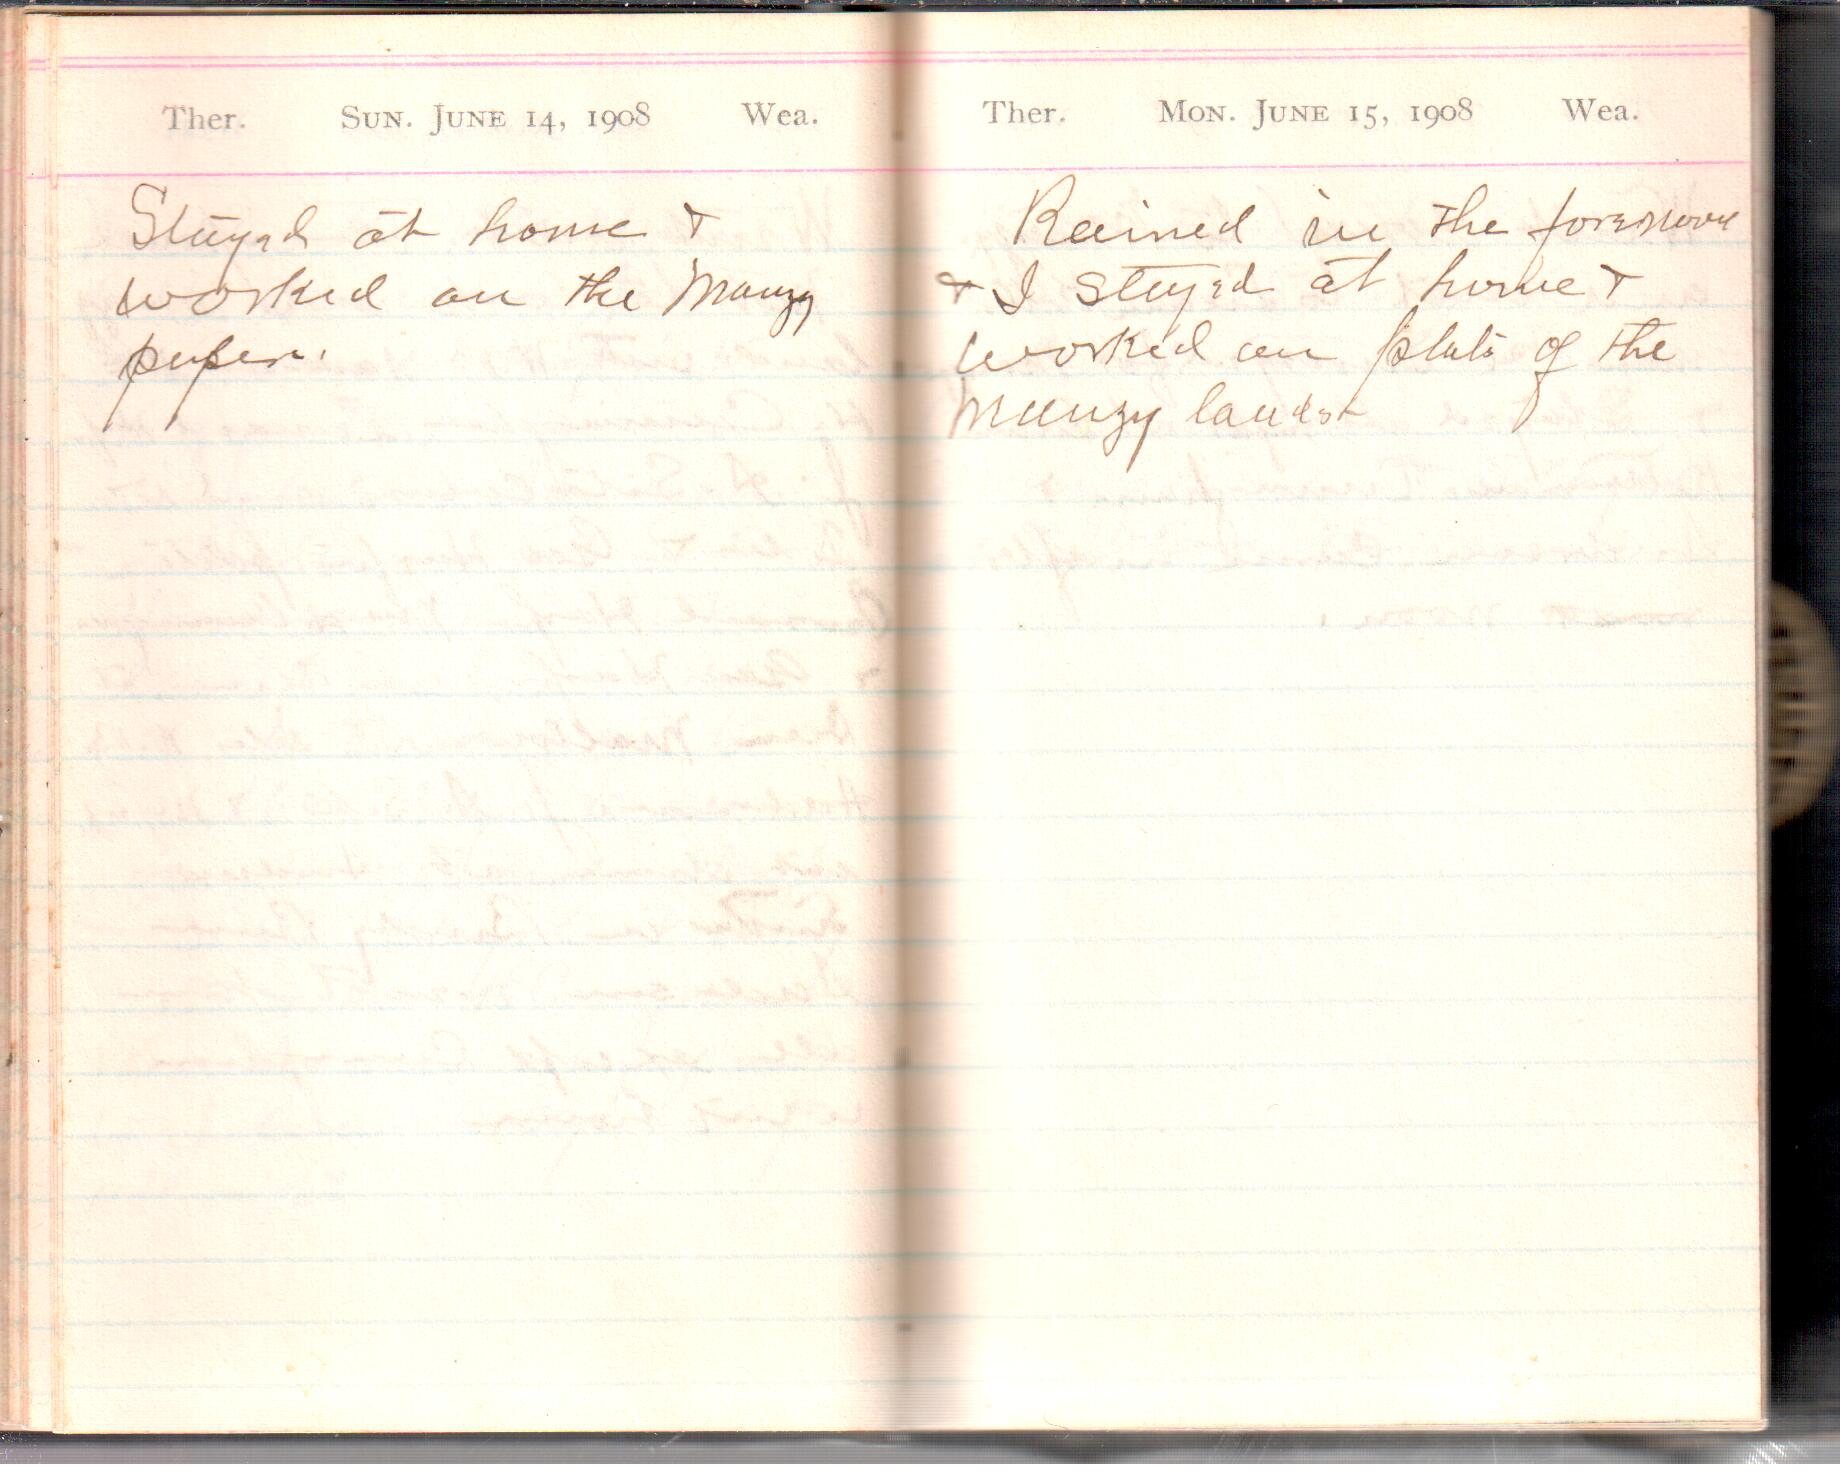 Ther. Sun. June 14, 1908 Wea.
Stayed at home &
worked on the Manzy
papers.
Ther. Mon. June 15, 1908 Wea.
Rained in the forenoon
& I stayed at home &
worked on plats of the
Manzy lands